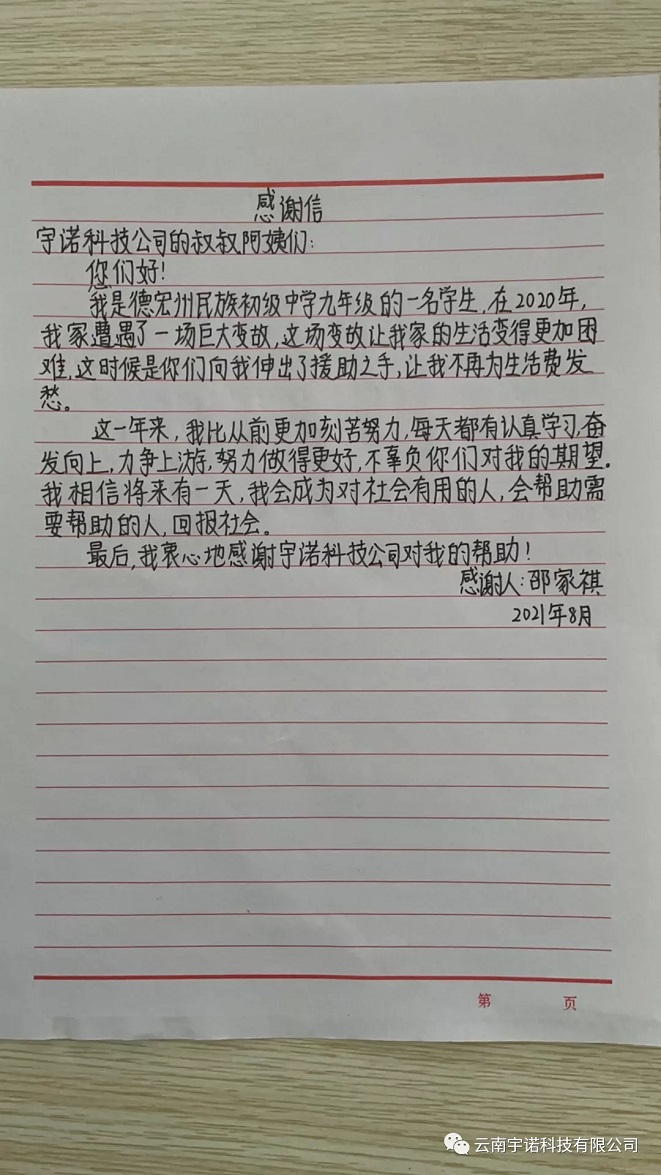 感谢信
宇诺科技公司的叔叔阿姨们:
您们好!
我是德宏州民族初级中学九年级的一名学生,在2020年,
我家遭遇了一场巨大变故,这场变故让我家的生活变得更加困
难,这时候是你们向我伸出了援助之手,让我不再为生活费发
愁。
这一年来,我比从前更加刻苦努力,每天都有认真学习,奋
发向上,力争上游,努力做得更好,不辜负你们对我的期望.
我相信将来有一天,我会成为对社会有用的人,会帮助需
要帮助的人,回报社会。
最后,我衷心地感谢宇诺科技公司对我的帮助!
感谢人:邵家祺
2021年8月
第 页
云南宇诺科技有限公司